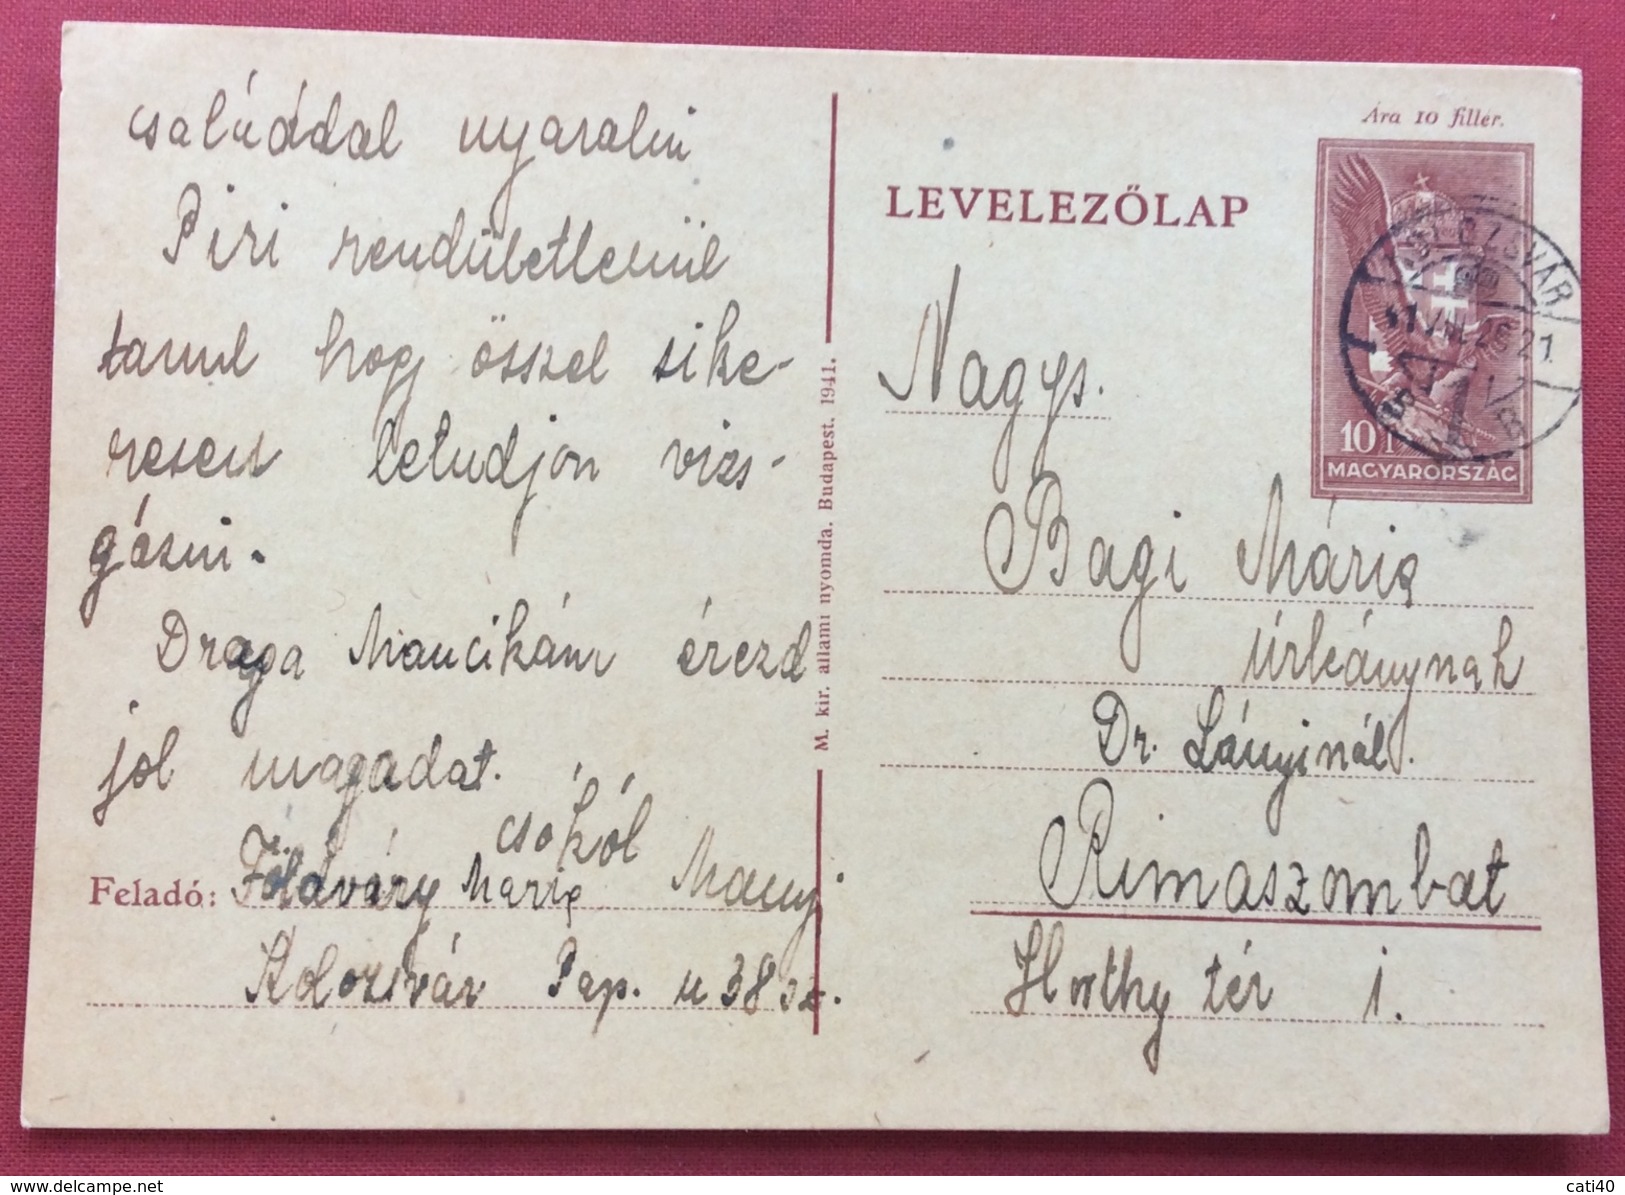 családdal nyaralni
Piri rendületlenül
tanul hogy ősszel sike-
resen letudjon vizs-
gázni.
Draga Mancikám érezd
jol magadat.
csókól
Manyi
Feladó: Földváry Maria
Kolozsvár Pap. u 38 sz.
M. kir. állami nyomda. Budapest. 1941.
Ára 10 fillér.
LEVELEZŐLAP
KOLOZSVÁR
41 VIII. 25 21
10 f
MAGYARORSZÁG
Nagys.
Bagi Mária
úrleánynak
Dr. Lányinál.
Rimaszombat
Horthy tér 1.
www.delcampe.net
cati40